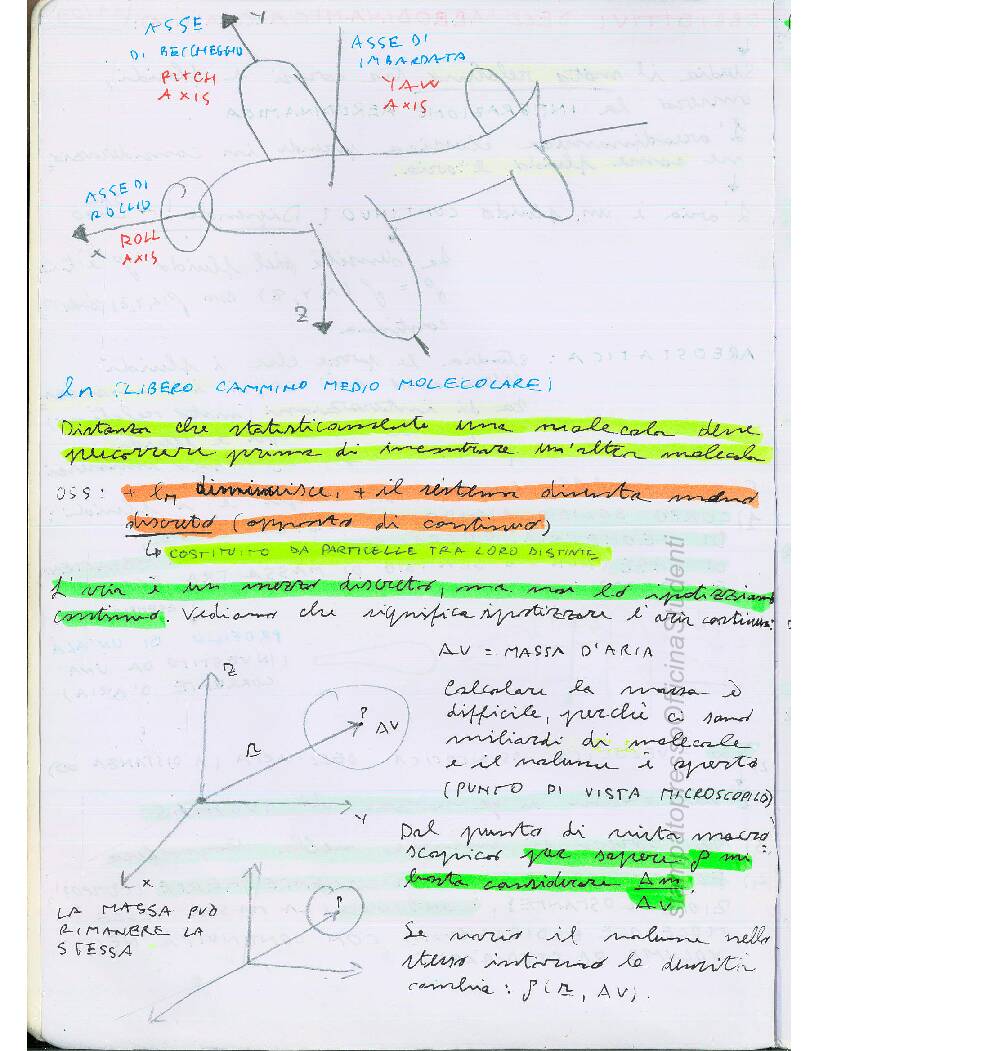 ASSE
DI BECCHEGGIO
PITCH
AXIS
Y
ASSE DI
IMBARDATA
YAW
AXIS
ASSE DI
ROLLIO
ROLL
AXIS
X
Z
ln (LIBERO CAMMINO MEDIO MOLECOLARE)
Distanza che statisticamente una molecola deve
percorrere prima di incontrare un'altra molecola
OSS: + lm diminuisce, + il sistema diventa meno
discreto (opposto di continuo)
↳ COSTITUITO DA PARTICELLE TRA LORO DISTINTE
L'aria è un mezzo discreto, ma noi lo ipotizziamo
continuo. Vediamo che significa ipotizzare l'aria continua:
ΔV = MASSA D'ARIA
Z
P
ΔV
r
Y
X
Calcolare la massa è
difficile, perchè ci sono
miliardi di molecole
e il volume è aperto
(PUNTO DI VISTA MICROSCOPICO)
Dal punto di vista macro
scopico per sapere ρ mi
basta considerare Δm/ΔV.
LA MASSA PUÒ
RIMANERE LA
STESSA
P
Se vario il volume nello
stesso intorno la densità
cambia: ρ(r, ΔV).
stampatopressoOfficinaStudenti